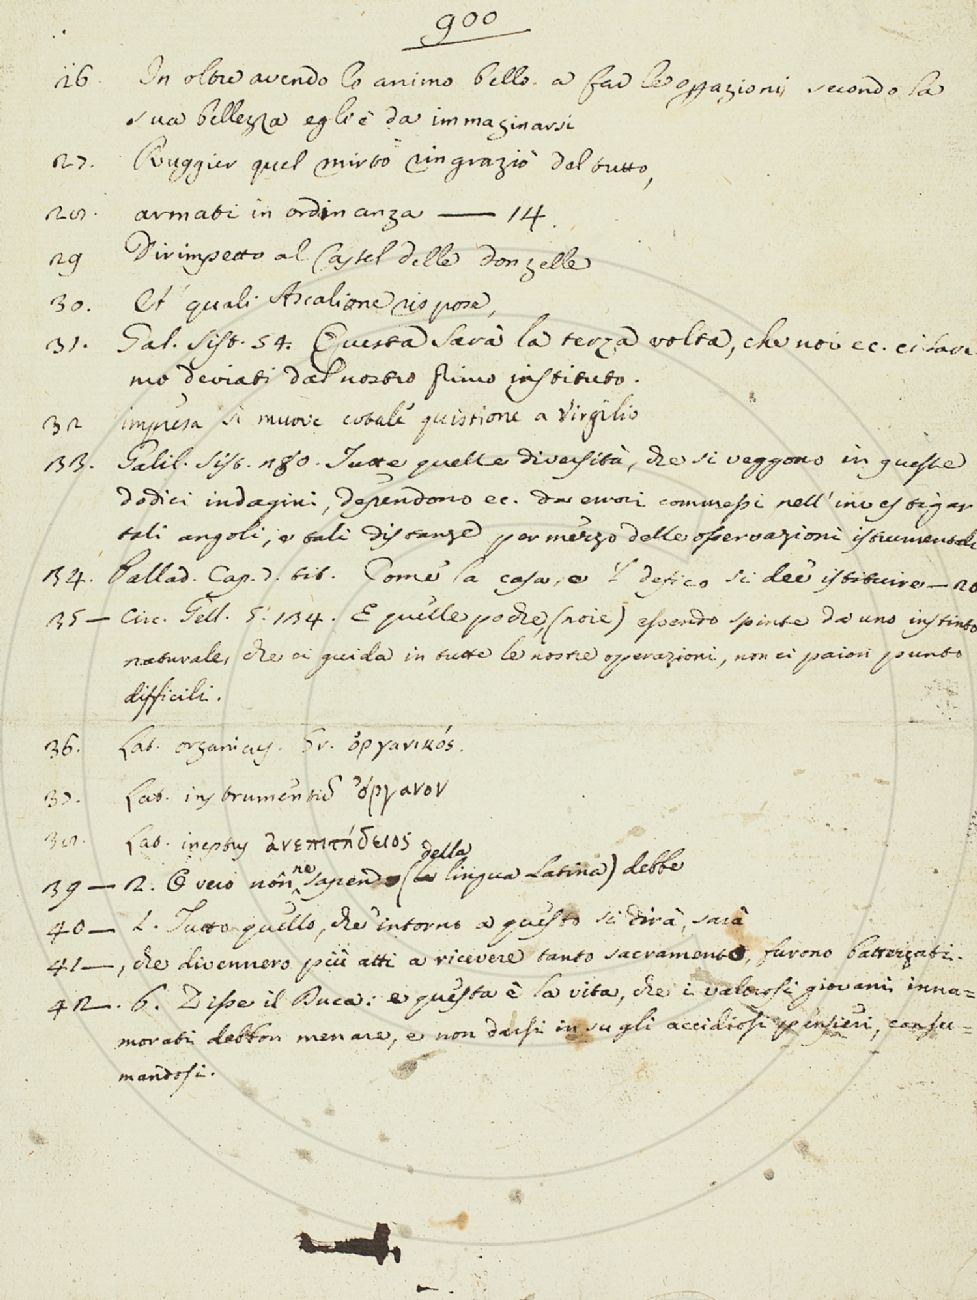 900
26. In oltre avendo lo animo bello a far le operazioni secondo la
sua bellezza egli è da immaginarsi
27. Ruggier quel mirto ringraziò del tutto,
28. armati in ordinanza — 14.
29 Dirimpetto al Castel delle donzelle
30. Et quali Ascalione rispose,
31. Gal. Sist. 54. Questa sarà la terza volta, che noi ec. ci sare
mo deviati dal nostro primo instituto.
32 impresa si muove cotale quistione a Virgilio
33. Galil. Sist. 280. Tutte quelle diversità, che si veggono in queste
dodici indagini, dependono ec. da errori commessi nell'investigar
tali angoli, e tali distanze per mezzo delle osservazioni istrumentali
34. Pallad. Cap. 7. tit. Come la casa, e l' defico si dee istituire — 20
35 — Circ. Gell. 5. 134. E quelle poche, (noie) essendo spinte da uno instinto
naturale, che ci guida in tutte le nostre operazioni, non ci paion punto
difficili.
36. Lat. organicus. Gr. ὀργανικός.
37. Lat. instrumentum ὄργανον
38. Lat. ineptus ἀνεπιτήδειος
39 — 2. O vero non ne sapendo (della lingua Latina) debbe
40 — 1. Tutto quello, che intorno a questo si dirà, sarà
41 —, che divennero più atti a ricevere tanto sacramento, furono battezzati.
42 —. 6. Disse il Duca: e questa è la vita, che i valorosi giovani inna=
morati debbon menare, e non darsi in su gli accidiosi pensieri, consu=
mandosi.